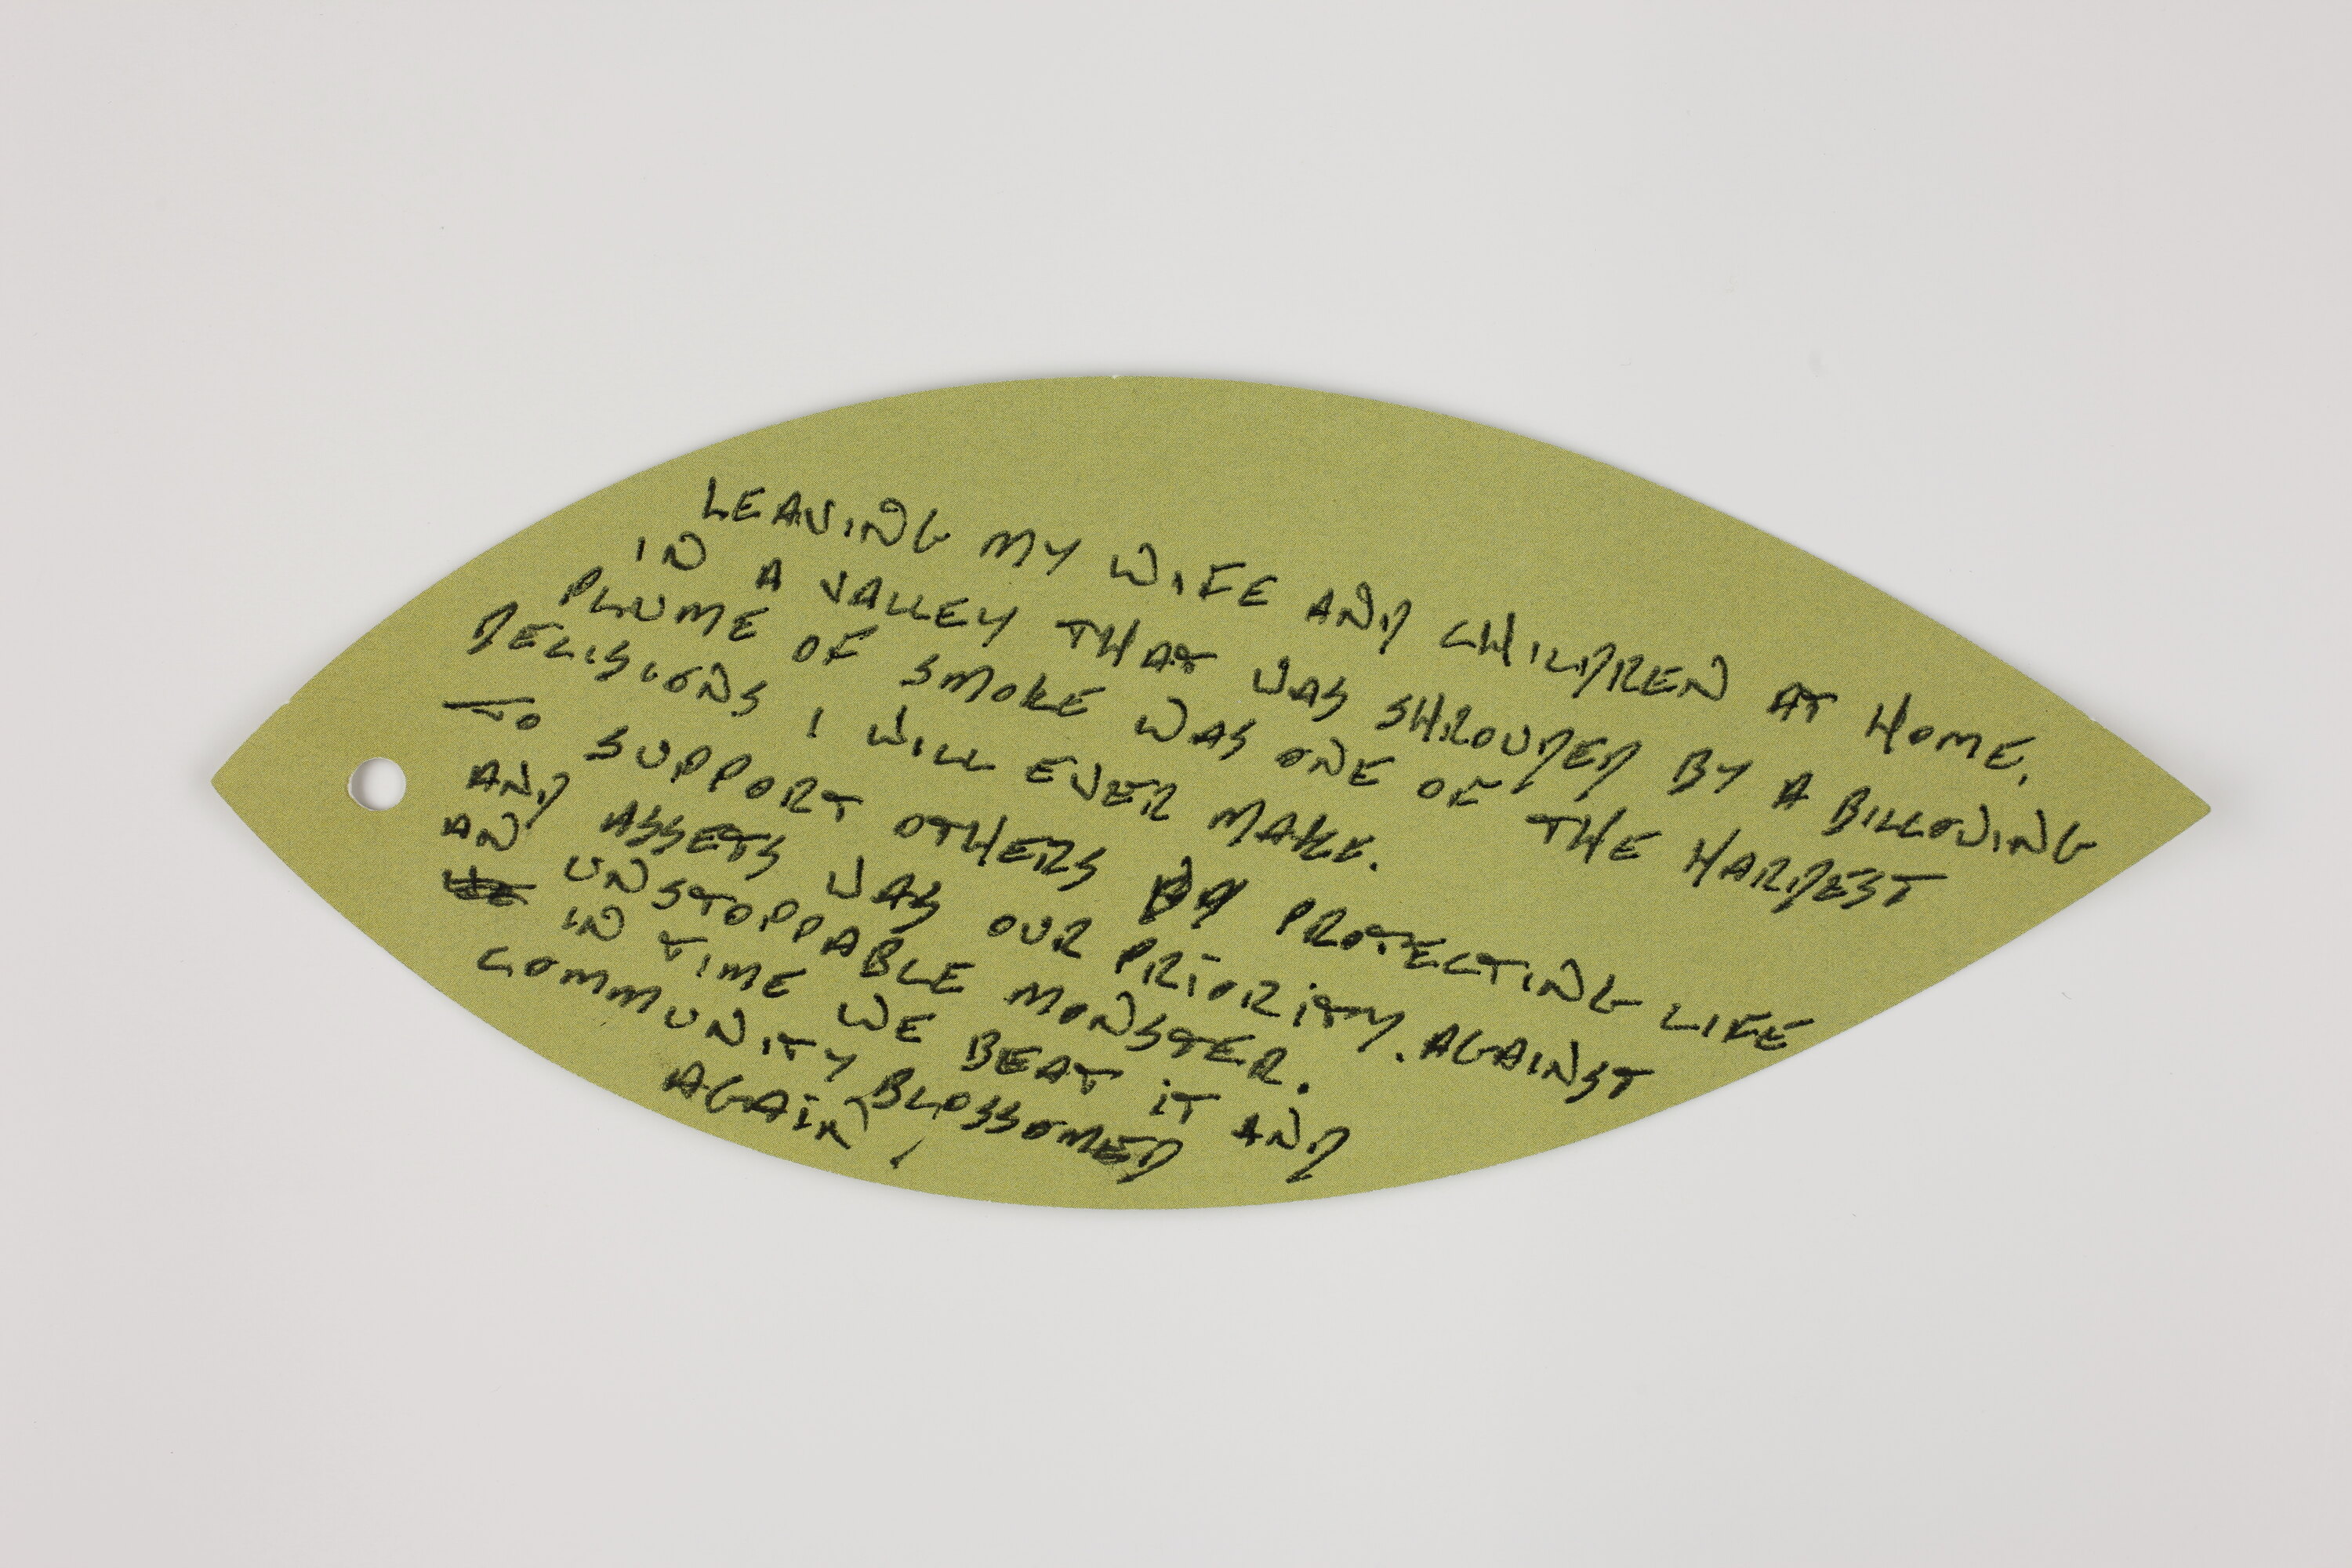 LEAVING MY WIFE AND CHILDREN AT HOME,
IN A VALLEY THAT WAS SHROUDED BY A BILLOWING
PLUME OF SMOKE WAS ONE OF THE HARDEST
DECISIONS I WILL EVER MAKE.
TO SUPPORT OTHERS BY PROTECTING LIFE
AND ASSETS WAS OUR PRIORITY. AGAINST
AN UNSTOPPABLE MONSTER.
IN TIME WE BEAT IT AND
COMMUNITY BLOSSOMED
AGAIN!